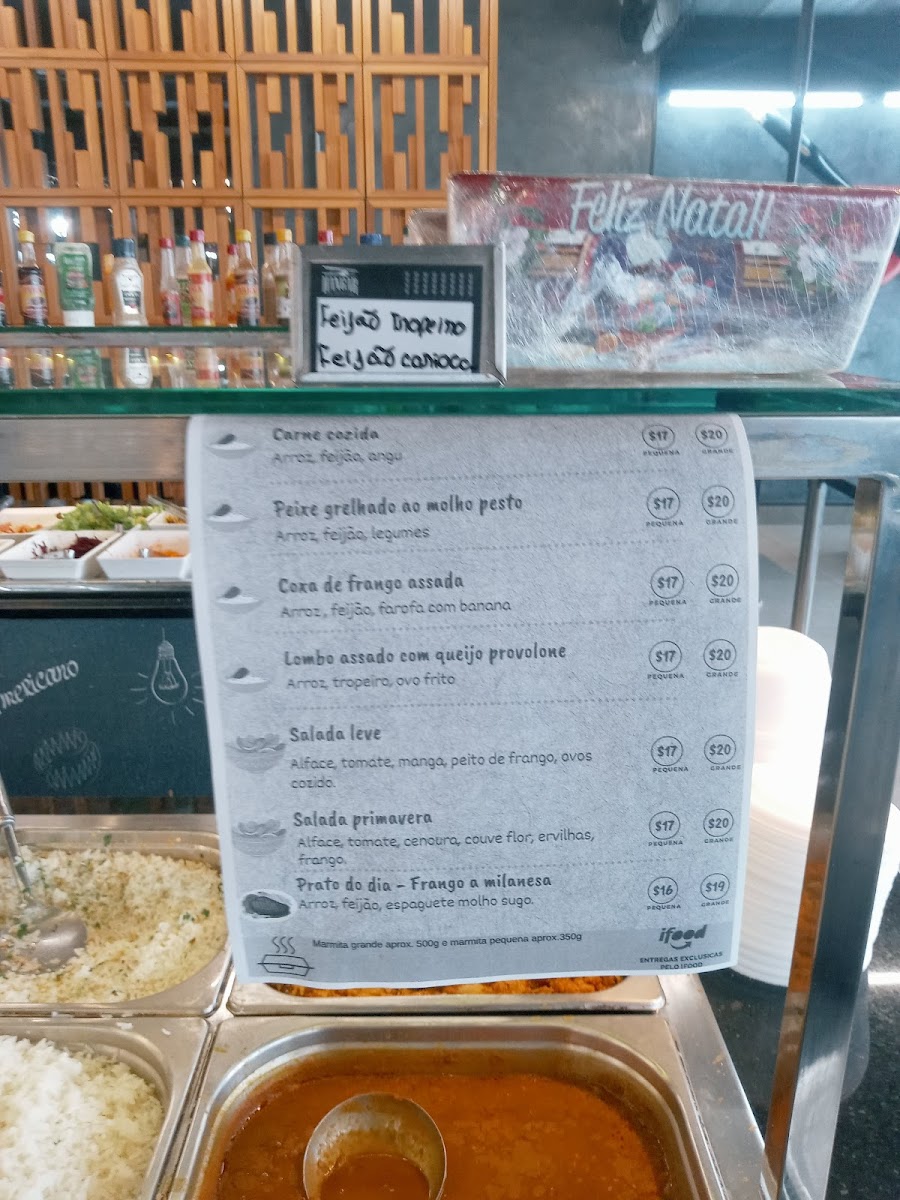 Feliz Natal!
Feijão Tropeiro
Feijão carioca
Carne cozida
Arroz, feijão, angu
$17 PEQUENA $20 GRANDE
Peixe grelhado ao molho pesto
Arroz, feijão, legumes
$17 PEQUENA $20 GRANDE
Coxa de frango assada
Arroz, feijão, farofa com banana
$17 PEQUENA $20 GRANDE
Lombo assado com queijo provolone
Arroz, tropeiro, ovo frito
$17 PEQUENA $20 GRANDE
Salada leve
Alface, tomate, manga, peito de frango, ovos
cozido.
$17 PEQUENA $20 GRANDE
Salada primavera
Alface, tomate, cenoura, couve flor, ervilhas,
frango.
$17 PEQUENA $20 GRANDE
Prato do dia - Frango a milanesa
Arroz, feijão, espaguete molho sugo.
$16 PEQUENA $19 GRANDE
Marmita grande aprox. 500g e marmita pequena aprox.350g
ifood
ENTREGAS EXCLUSICAS
PELO IFOOD
mexicano